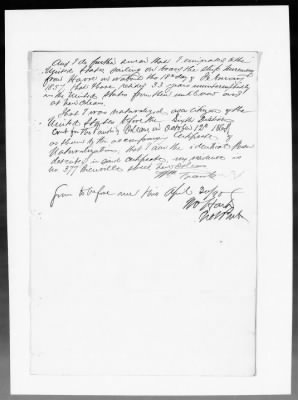 And I do further swear that I emigrated to the
United States sailing on board the ship
from Havre on or about the 10th day of February
1857, that I have resided 33 years uninterruptedly
in the United States from then until
at New Orleans.
That I was Naturalized as a citizen of the
United States before the Sixth District
Court for the Parish of Orleans on October 12th
as shown by the accompanying Certificate of
Naturalization, that I am the identical person
described in said certificate, my residence is
no 377 Bienville street New Orleans
Wm Frank
Sworn to before me this April